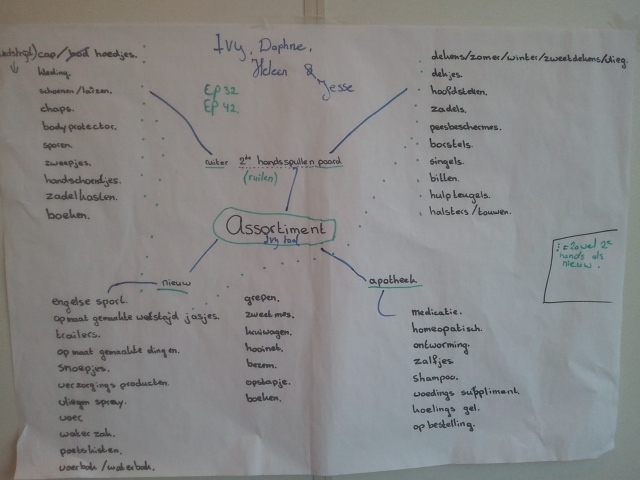 Ivy, Daphne,
Heleen & Jesse
EP 32
EP 42
cap / hoedjes.
kleding.
schoenen / laizen
chaps.
bodyprotector.
sporen
zweepjes.
handschoentjes.
zadelkasten.
boeken.
dekens/zomer/winter/zweetdekens/vlieg.
dekjes.
hoofdstellen.
zadels.
peesbeschermes.
borstels.
singels.
bitten.
hulpteugels.
halsters / touwen.
ruiter 2de handsspullen paard
(ruilen)
Assortiment
nieuw
engelse sport.
op maat gemaakte wetstrijd jasjes.
trailers.
op maat gemaakte dingen.
snoepjes.
verzorgings producten.
vliegen spray.
voer
water zak.
poetskisten.
voerbak / waterbak.
grepen.
zweet mes.
kruiwagen.
hooinet.
bezem.
opstapje.
boeken.
apotheek
medicatie.
homeopatisch.
ontworming.
zalfjes
shampoo.
voedings suppliment.
koelings gel.
op bestelling.
: = zowel 2e
hands als
nieuw.